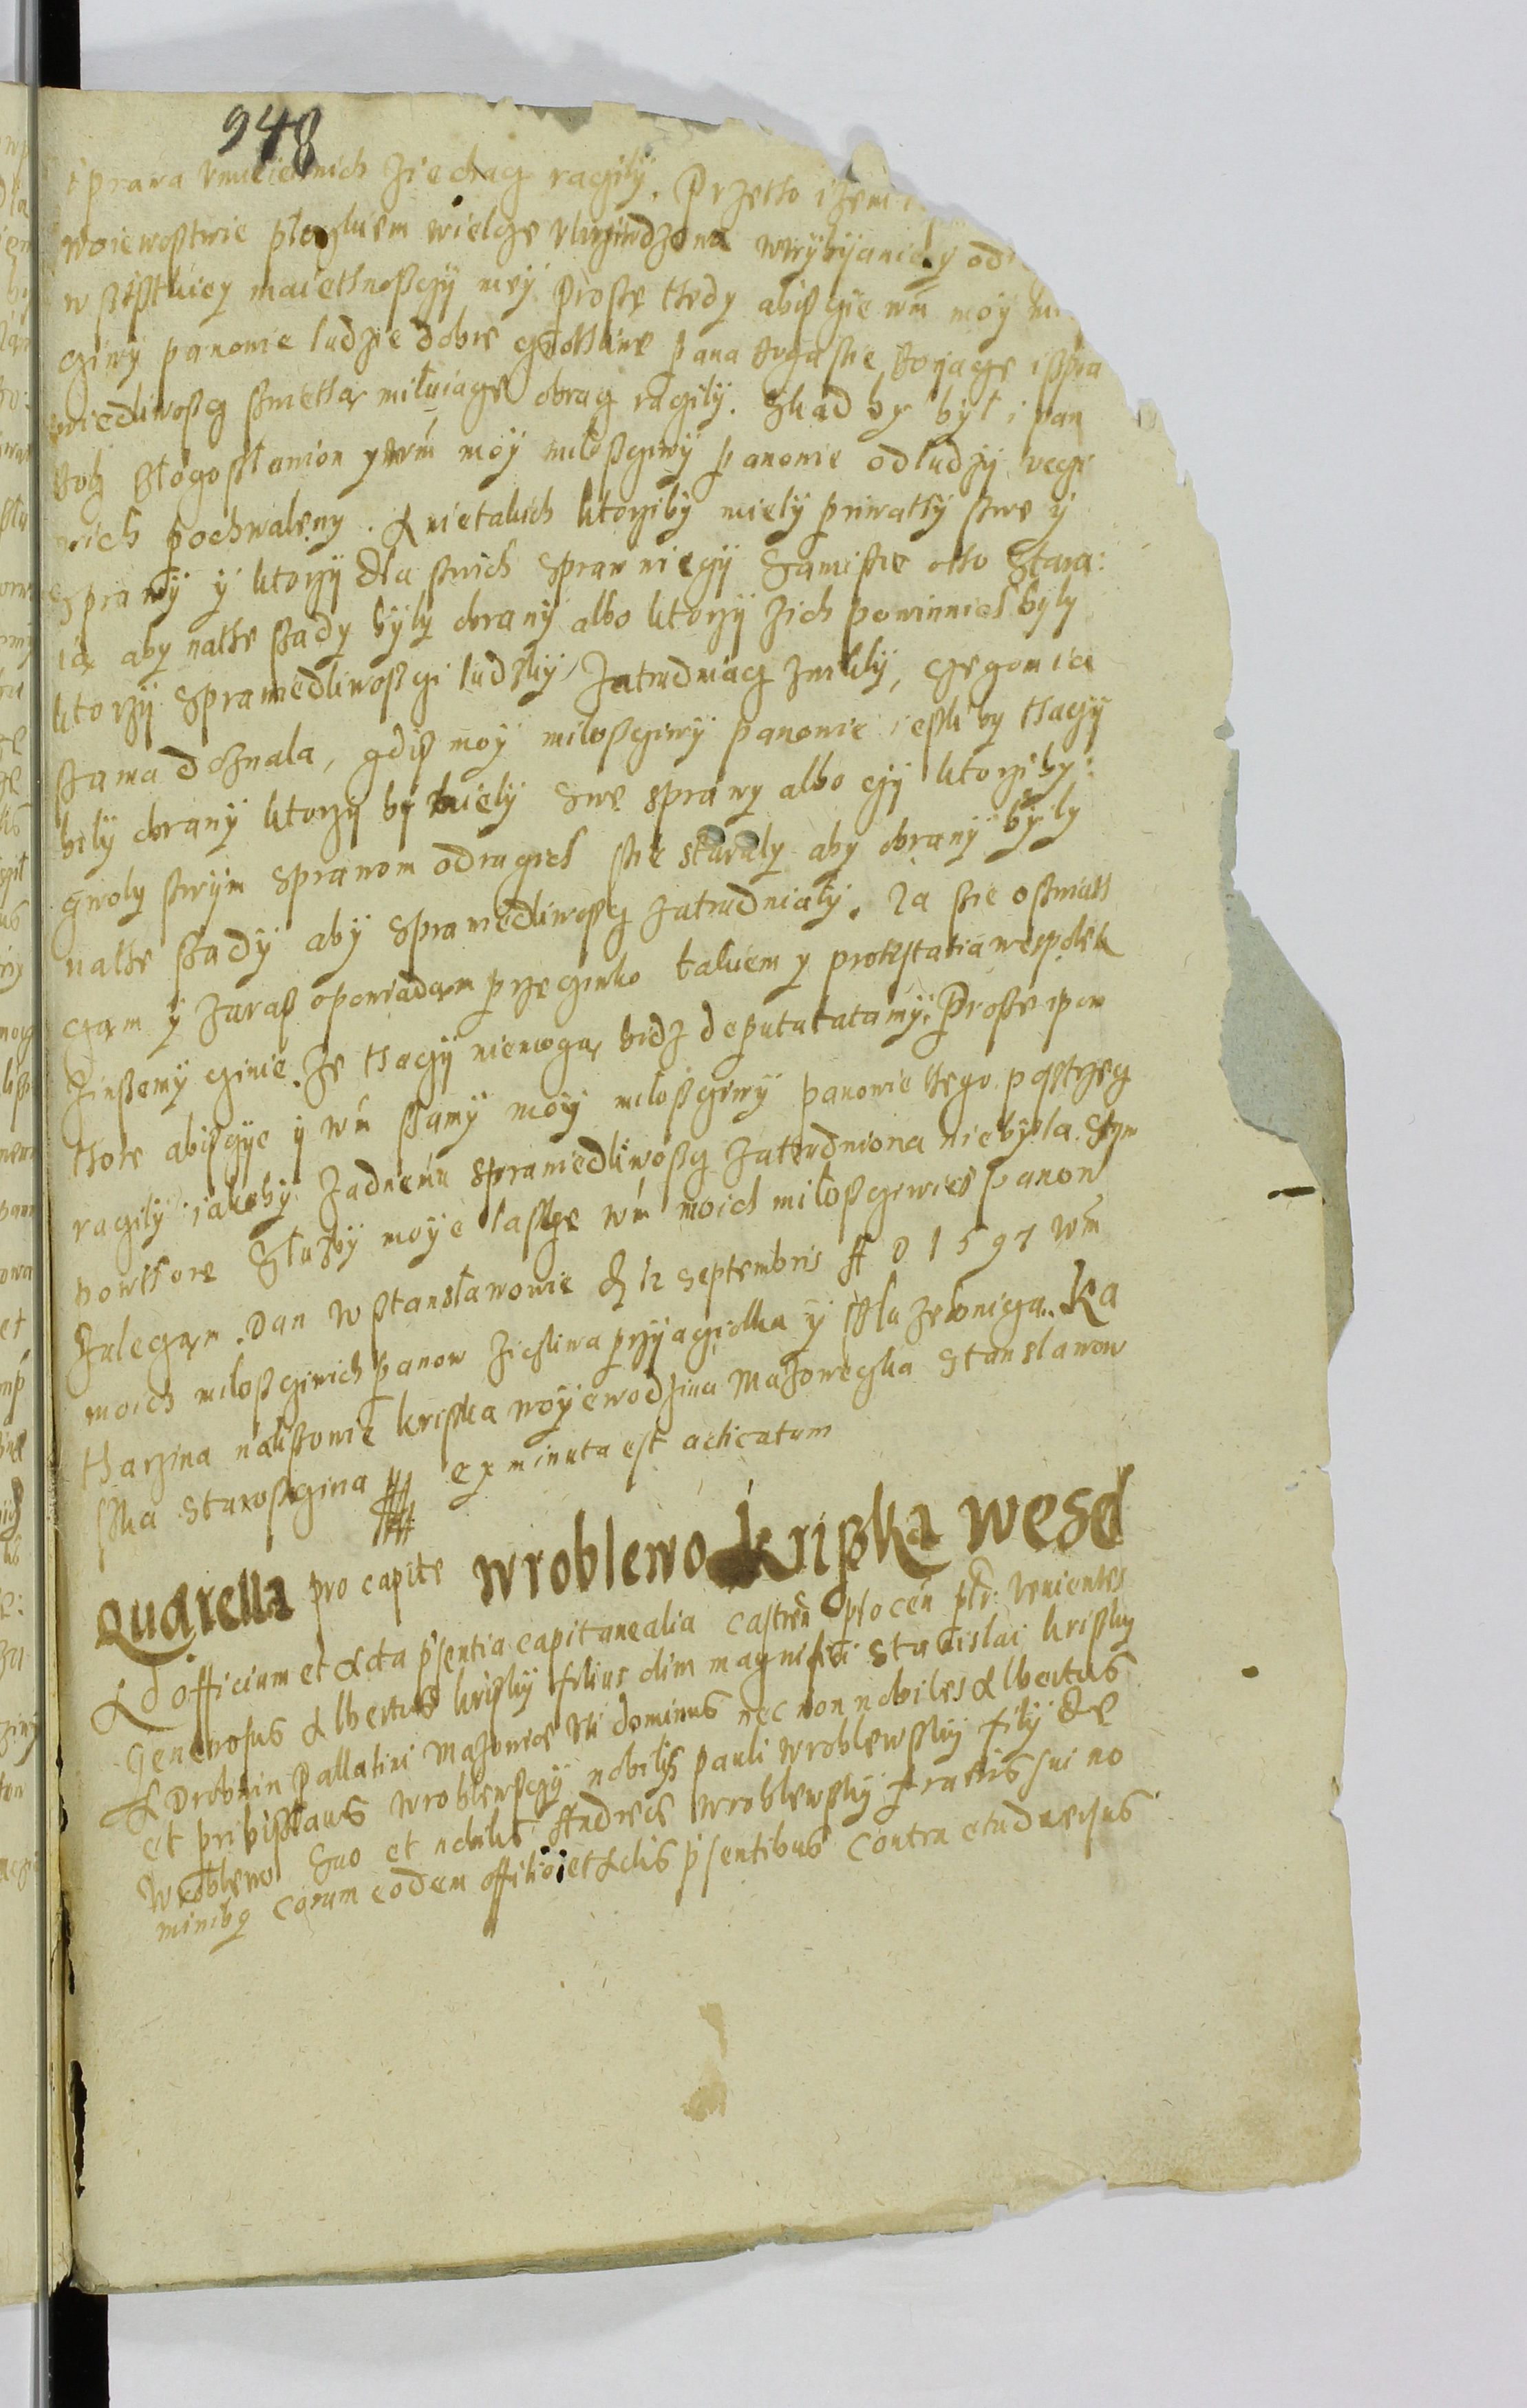 948
i prawa vmieietnich ziechac raczily. Przetho iżem
woiewostwie ploczkiem wielcze vkrziwdzona wwybijaniey od
wszistkiey maiethnosczÿ meÿ. Prosze thedy abisczie wm moÿ mi
cziwÿ panowie ludzie dobre cznothliwe pana Boga sie boiącze i spra
wiedliwoscz swietha miluiącze obrac raczilÿ. Skad by byl i pan
Bog blogoslawion y wm moÿ miloscziwÿ panowie odludzÿ vcczi
wich pochwalenÿ. A nietakich ktorziby mielÿ priwatÿ swe ÿ
sprawÿ ÿ ktorzÿ dla swich spraw nieczÿ samisie otho stara:
ią aby nathe sady byly obranÿ albo ktorzÿ zich powinnich byly
ktorzÿ sprawiedliwosczi ludzkÿ zatrudniac zwikly, czegom ia
sama doznala, gdis moÿ miloscziwÿ panowie iesliby thaczÿ
bily obranÿ ktorzÿ by mielÿ swe sprawy albo czÿ ktorziby:
gwoly swym sprawom odrugich sie staraly aby obranÿ byly
nathe sadÿ abÿ sprawiedliwoscz zatrudnialÿ. Ja sie oswiath
czam ÿ zaras opowiadam przeciwko takiem y protestatia wespolek
zinszemÿ czinie. Ze thaczÿ niemoga bidz deputatatamÿ. Prosze ipow
thore abisczÿe ÿ wm samÿ moÿ miloscziwÿ panowie thego pqstrzeg
raczilÿ iakobÿ zadnemu sprawiedliwoscz zatrudniona niebyla. Sym
powthore Sluzbÿ moÿe lascze wm moich milosciwich panow
zalecąm. Dan w stanslawowie d 12 septembris A D 1597 wm
moich milosciwich panow zicliwa przÿacziolka ÿ sluzebnicza. Ka
tharzina nalisowie kriska woÿewodzina Mazowieczka Stanslawow
ska Starosczina ex minuta est acticatum
Quarella pro capite Wroblewo kriska wesel
Ad officium et Acta p'sentia capitanealia castren plocen plr: venientes
Generosus Albertus krisky filius olim magnifici Stanislai krisky
A Drobnin Pallatini Mazowiae vti dominus nec non nobiles Albertus
et pribislaus Wroblewsczÿ nobilis pauli Wroblewsky filÿ de
Wroblewo suo et nobilis Andreae Wroblewsky fratris sui no
minibq coram eodem officio et Actis p'sentibus contra et aduersus